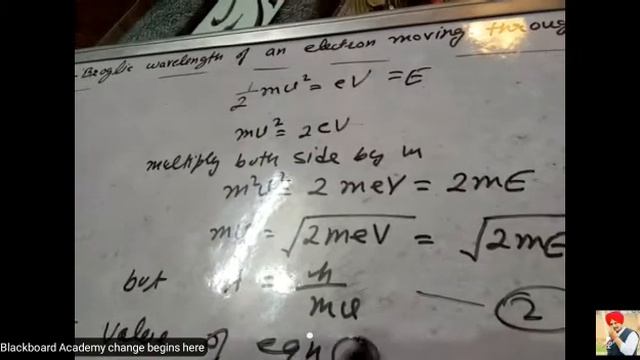 Broglie wavelength of an electron moving throug
1/2 mu² = eV = E
mu² = 2eV
multiply both side by m
m²u² = 2meV = 2mE
mu = √2meV = √2mE
but = h/mu — 2
value of eqn
Blackboard Academy change begins here